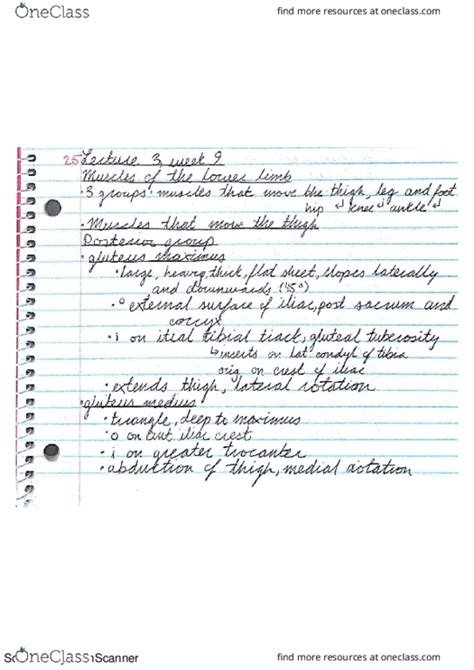 OneClass
find more resources at oneclass.com
25 Lecture 3, week 9
Muscles of the lower limb
• 3 groups: muscles that move the thigh, leg and foot
hip ↲ knee ↲ ankle ↲
• Muscles that move the thigh
Posterior group
• gluteus maximus
• large, heavy, thick, flat sheet, slopes laterally
and downwards (45°)
• o external surface of iliac, post sacrum and
coccyx
• i on itial tibial tract, gluteal tuberosity
↳ inserts on lat condyl of tibia
orig on crest of iliac
• extends thigh, lateral rotation
• gluteus medius
• triangle, deep to maximus
• o on iliac crest
• i on greater trocanter
• abduction of thigh, medial rotation
OneClass
Scanner
find more resources at oneclass.com